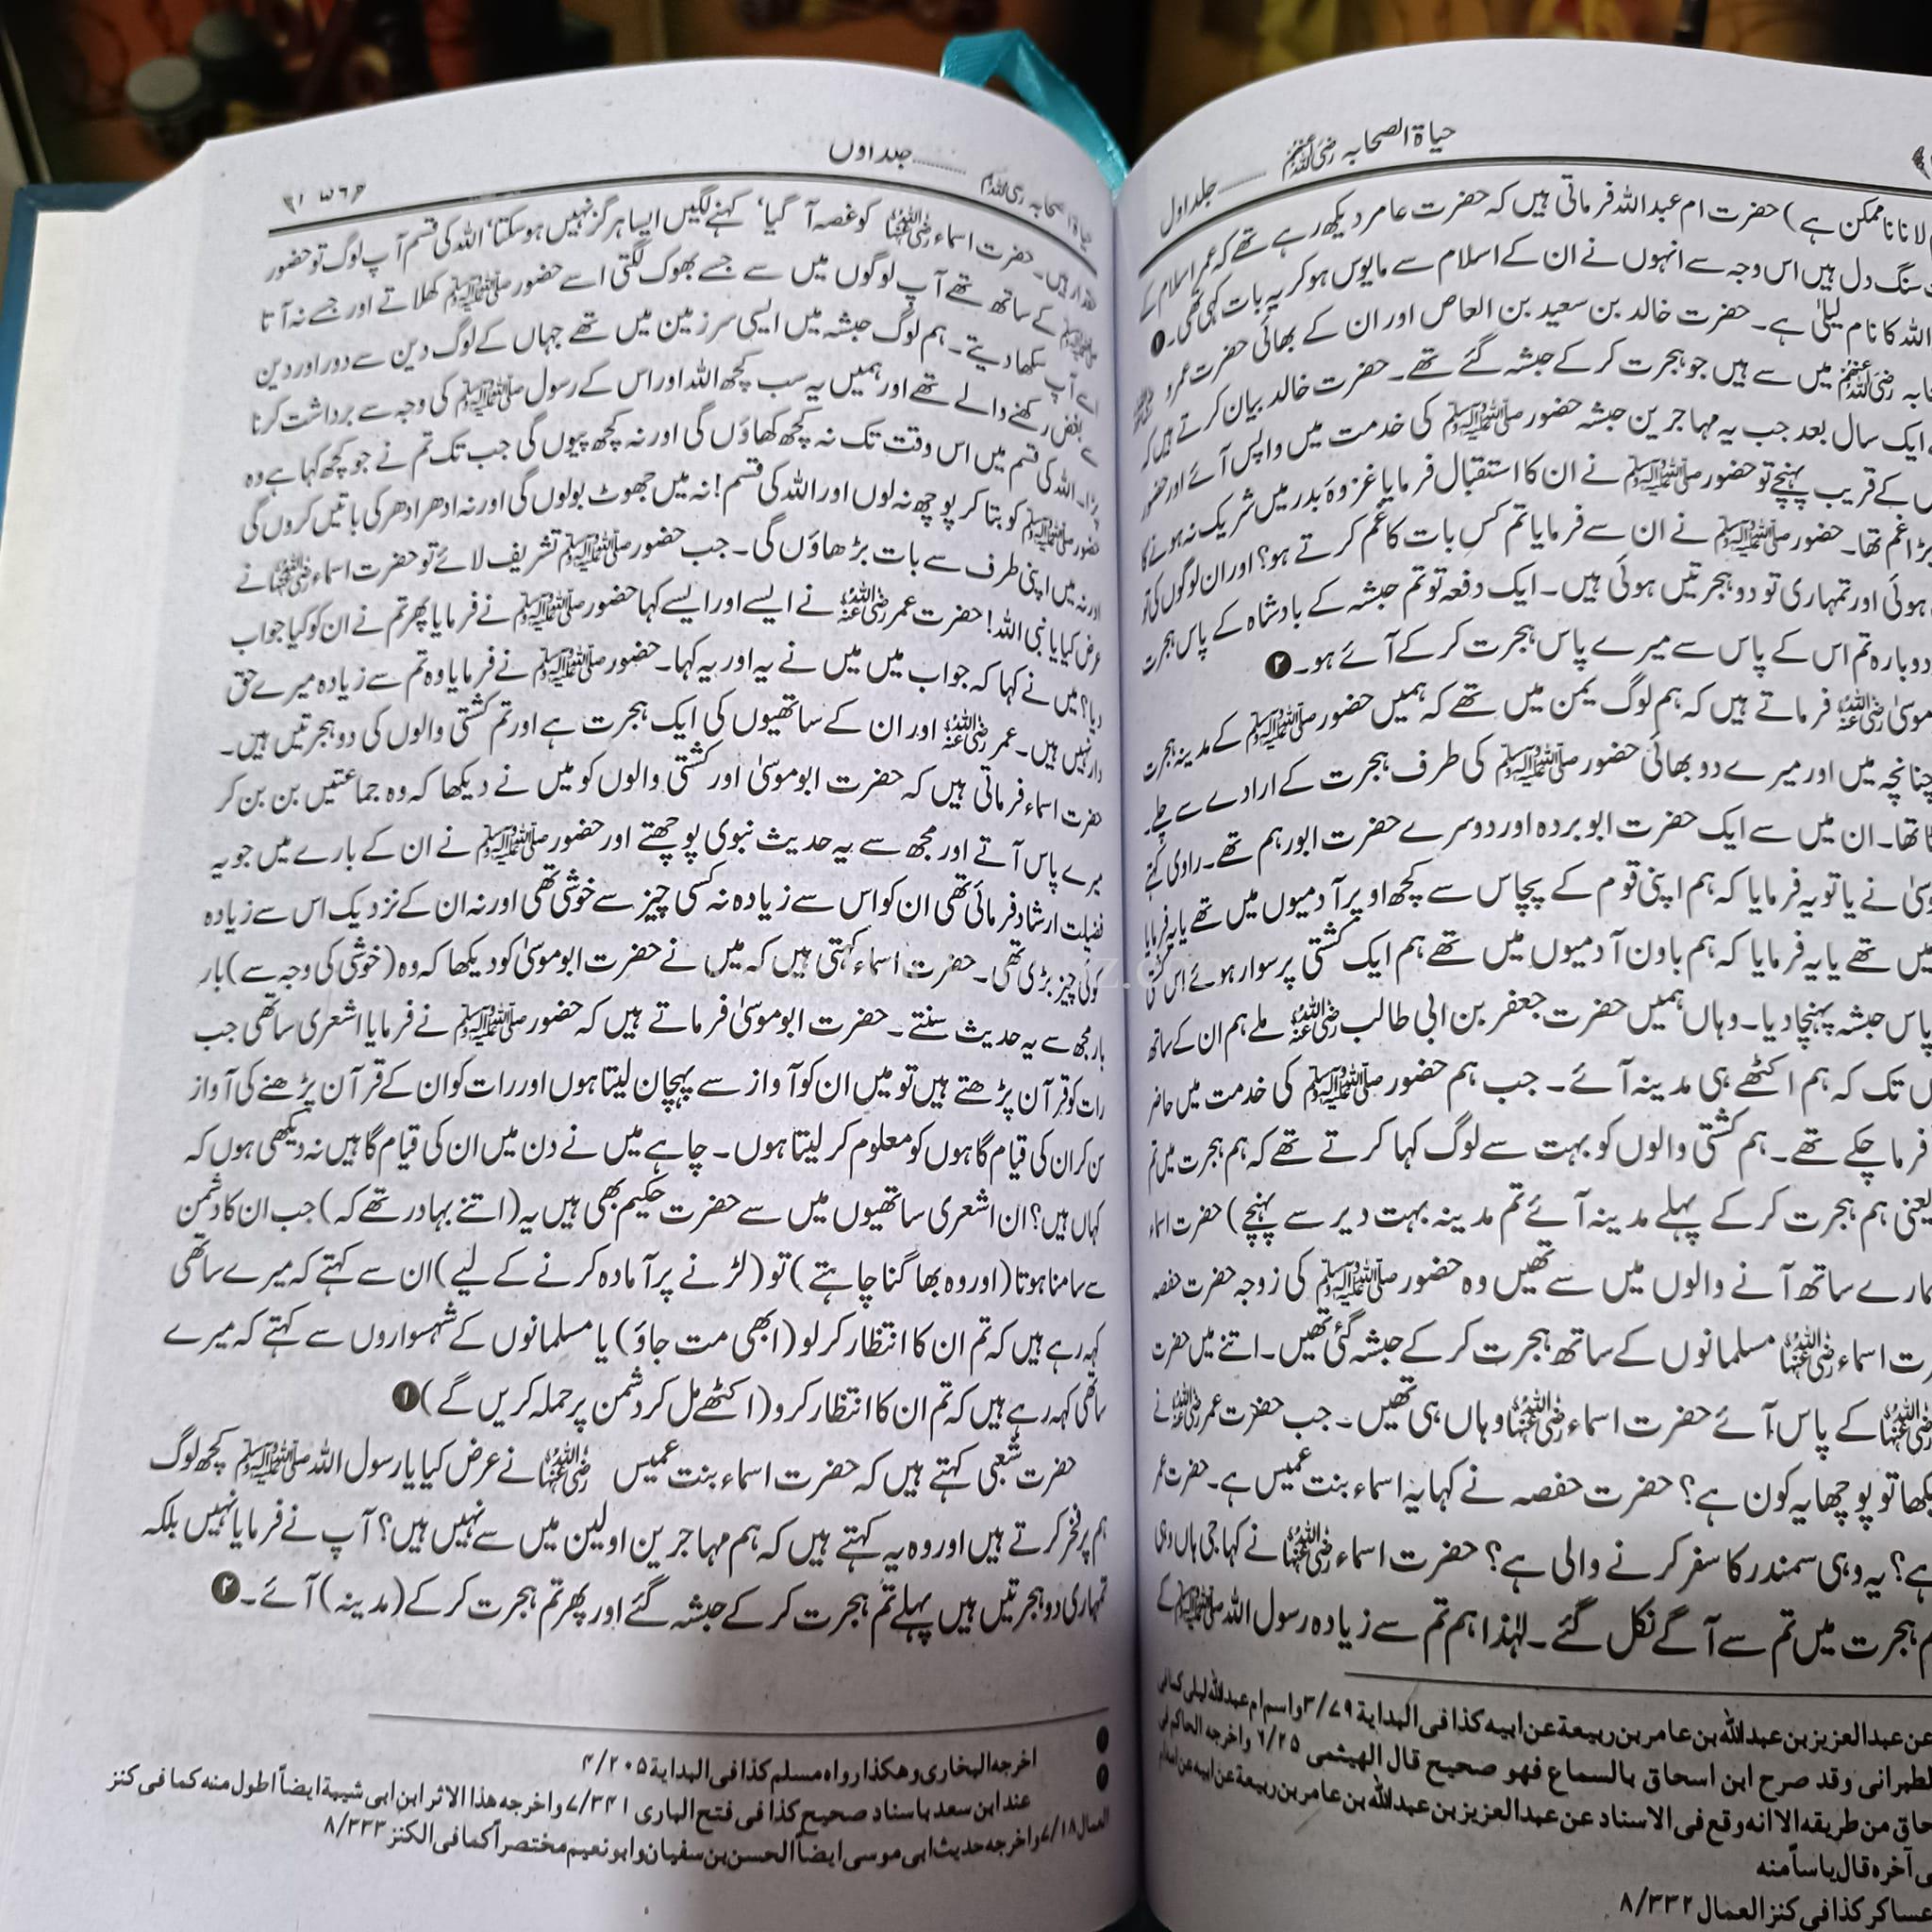 حیاۃ الصحابہ رضی اللہ عنہم ......... جلد اول
لانا ناممکن ہے) حضرت ام عبداللہ فرماتی ہیں کہ حضرت عامر دیکھ رہے تھے کہ عمر اسلام کے
سنگ دل ہیں اس وجہ سے انہوں نے ان کے اسلام سے مایوس ہو کر یہ بات کہی تھی۔ ❶
اللہ کا نام لیلیٰ ہے۔ حضرت خالد بن سعید بن العاص اور ان کے بھائی حضرت عمرو
رضی اللہ عنہم میں سے ہیں جو ہجرت کر کے حبشہ گئے تھے۔ حضرت خالد بیان کرتے ہیں کہ
ایک سال بعد جب یہ مہاجرین حبشہ حضور صلی اللہ علیہ وسلم کی خدمت میں واپس آئے اور حضور
کے قریب پہنچے تو حضور صلی اللہ علیہ وسلم نے ان کا استقبال فرمایا غزوہ بدر میں شریک نہ ہونے کا
بڑا غم تھا۔ حضور صلی اللہ علیہ وسلم نے ان سے فرمایا تم کس بات کا غم کرتے ہو؟ اور ان لوگوں کی تو
ہوئی اور تمہاری تو دو ہجرتیں ہوئی ہیں۔ ایک دفعہ تو تم حبشہ کے بادشاہ کے پاس ہجرت
دوبارہ تم اس کے پاس سے میرے پاس ہجرت کر کے آئے ہو۔ ❷
موسیٰ رضی اللہ عنہ فرماتے ہیں کہ ہم لوگ یمن میں تھے کہ ہمیں حضور صلی اللہ علیہ وسلم کے مدینہ ہجرت
چنانچہ میں اور میرے دو بھائی حضور صلی اللہ علیہ وسلم کی طرف ہجرت کے ارادے سے چلے
تھا۔ ان میں سے ایک حضرت ابو بردہ اور دوسرے حضرت ابو رہم تھے۔ راوی کہتے
نے یا تو یہ فرمایا کہ ہم اپنی قوم کے پچاس سے کچھ اوپر آدمیوں میں تھے یا یہ فرمایا
میں تھے یا یہ فرمایا کہ ہم باون آدمیوں میں تھے ہم ایک کشتی پر سوار ہوئے اس کشتی
پاس حبشہ پہنچا دیا۔ وہاں ہمیں حضرت جعفر بن ابی طالب رضی اللہ عنہ ملے ہم ان کے ساتھ
تک کہ ہم اکٹھے ہی مدینہ آئے۔ جب ہم حضور صلی اللہ علیہ وسلم کی خدمت میں حاضر
فرما چکے تھے۔ ہم کشتی والوں کو بہت سے لوگ کہا کرتے تھے کہ ہم ہجرت میں تم
یعنی ہم ہجرت کر کے پہلے مدینہ آئے تم مدینہ بہت دیر سے پہنچے) حضرت اسماء
ساتھ آنے والوں میں سے تھیں وہ حضور صلی اللہ علیہ وسلم کی زوجہ حضرت حفصہ
اسماء رضی اللہ عنہا مسلمانوں کے ساتھ ہجرت کر کے حبشہ گئی تھیں۔ اتنے میں حضرت
رضی اللہ عنہا کے پاس آئے حضرت اسماء رضی اللہ عنہا وہاں ہی تھیں۔ جب حضرت عمر رضی اللہ عنہ نے
تو پوچھا یہ کون ہے؟ حضرت حفصہ نے کہا یہ اسماء بنت عمیس ہے۔ حضرت عمر
ہے؟ یہ وہی سمندر کا سفر کرنے والی ہے؟ حضرت اسماء رضی اللہ عنہا نے کہا جی ہاں وہی
ہجرت میں تم سے آگے نکل گئے۔ لہٰذا ہم تم سے زیادہ رسول اللہ صلی اللہ علیہ وسلم کے
عن عبدالعزیز بن عبداللہ بن عامر بن ربیعۃ عن ابیہ کذا فی البدایۃ ۳/۷۹ واسم ام عبداللہ لیلی کما فی
الطبرانی وقد صرح ابن اسحاق بالسماع فھو صحیح قال الھیثمی ۶/۲۵ واخرجہ الحاکم فی
من طریقہ الا انہ وقع فی الاسناد عن عبدالعزیز بن عبداللہ بن عامر بن ربیعۃ عن ابیہ عن
آخرہ قال یاساً منہ
عساکر کذا فی کنز العمال ۸/۳۳۲
جلد اول
حقدار ہیں۔ حضرت اسماء رضی اللہ عنہا کو غصہ آ گیا، کہنے لگیں ایسا ہرگز نہیں ہو سکتا، اللہ کی قسم آپ لوگ تو حضور
صلی اللہ علیہ وسلم کے ساتھ تھے آپ لوگوں میں سے جسے بھوک لگتی اسے حضور صلی اللہ علیہ وسلم کھلاتے اور جسے نہ آتا
اسے آپ سکھا دیتے۔ ہم لوگ حبشہ میں ایسی سرزمین میں تھے جہاں کے لوگ دین سے دور اور دین
سے بغض رکھنے والے تھے اور ہمیں یہ سب کچھ اللہ اور اس کے رسول صلی اللہ علیہ وسلم کی وجہ سے برداشت کرنا
پڑا۔ اللہ کی قسم میں اس وقت تک نہ کچھ کھاؤں گی اور نہ کچھ پیوں گی جب تک تم نے جو کچھ کہا ہے وہ
حضور صلی اللہ علیہ وسلم کو بتا کر پوچھ نہ لوں اور اللہ کی قسم! نہ میں جھوٹ بولوں گی اور نہ ادھر ادھر کی باتیں کروں گی
اور نہ میں اپنی طرف سے بات بڑھاؤں گی۔ جب حضور صلی اللہ علیہ وسلم تشریف لائے تو حضرت اسماء رضی اللہ عنہا نے
عرض کیا یا نبی اللہ! حضرت عمر رضی اللہ عنہ نے ایسے اور ایسے کہا حضور صلی اللہ علیہ وسلم نے فرمایا پھر تم نے ان کو کیا جواب
دیا؟ میں نے کہا کہ جواب میں میں نے یہ اور یہ کہا۔ حضور صلی اللہ علیہ وسلم نے فرمایا وہ تم سے زیادہ میرے حق
دار نہیں ہیں۔ عمر رضی اللہ عنہ اور ان کے ساتھیوں کی ایک ہجرت ہے اور تم کشتی والوں کی دو ہجرتیں ہیں۔
حضرت اسماء فرماتی ہیں کہ حضرت ابو موسیٰ اور کشتی والوں کو میں نے دیکھا کہ وہ جماعتیں بن بن کر
میرے پاس آتے اور مجھ سے یہ حدیث نبوی پوچھتے اور حضور صلی اللہ علیہ وسلم نے ان کے بارے میں جو یہ
فضیلت ارشاد فرمائی تھی ان کو اس سے زیادہ نہ کسی چیز سے خوشی تھی اور نہ ان کے نزدیک اس سے زیادہ
کوئی چیز بڑی تھی۔ حضرت اسماء کہتی ہیں کہ میں نے حضرت ابو موسیٰ کو دیکھا کہ وہ (خوشی کی وجہ سے) بار
بار مجھ سے یہ حدیث سنتے۔ حضرت ابو موسیٰ فرماتے ہیں کہ حضور صلی اللہ علیہ وسلم نے فرمایا اشعری ساتھی جب
رات کو قرآن پڑھتے ہیں تو میں ان کو آواز سے پہچان لیتا ہوں اور رات کو ان کے قرآن پڑھنے کی آواز
سن کر ان کی قیام گاہوں کو معلوم کر لیتا ہوں۔ چاہے میں نے دن میں ان کی قیام گاہیں نہ دیکھی ہوں کہ
کہاں ہیں؟ ان اشعری ساتھیوں میں سے حضرت حکیم بھی ہیں یہ (اتنے بہادر تھے کہ) جب ان کا دشمن
سے سامنا ہوتا (اور وہ بھاگنا چاہتے) تو (لڑنے پر آمادہ کرنے کے لیے) ان سے کہتے کہ میرے ساتھی
کہہ رہے ہیں کہ تم ان کا انتظار کر لو (ابھی مت جاؤ) یا مسلمانوں کے شہسواروں سے کہتے کہ میرے
ساتھی کہہ رہے ہیں کہ تم ان کا انتظار کرو (اکٹھے مل کر دشمن پر حملہ کریں گے) ❶
حضرت شعبی کہتے ہیں کہ حضرت اسماء بنت عمیس رضی اللہ عنہا نے عرض کیا یا رسول اللہ صلی اللہ علیہ وسلم کچھ لوگ
ہم پر فخر کرتے ہیں اور وہ یہ کہتے ہیں کہ ہم مہاجرین اولین میں سے نہیں ہیں؟ آپ نے فرمایا نہیں بلکہ
تمہاری دو ہجرتیں ہیں پہلے تم ہجرت کر کے حبشہ گئے اور پھر تم ہجرت کر کے (مدینہ) آئے۔ ❷
❶ اخرجہ البخاری وھکذا رواہ مسلم کذا فی البدایۃ ۴/۲۰۵
❷ عند ابن سعد باسناد صحیح کذا فی فتح الباری ۷/۳۴۱ واخرجہ ھذا الاثر ابن ابی شیبۃ ایضاً اطول منہ کما فی کنز
العمال ۷/۱۸ واخرجہ حدیث ابی موسی ایضاً الحسن بن سفیان وابو نعیم مختصراً کما فی الکنز ۸/۳۳۳